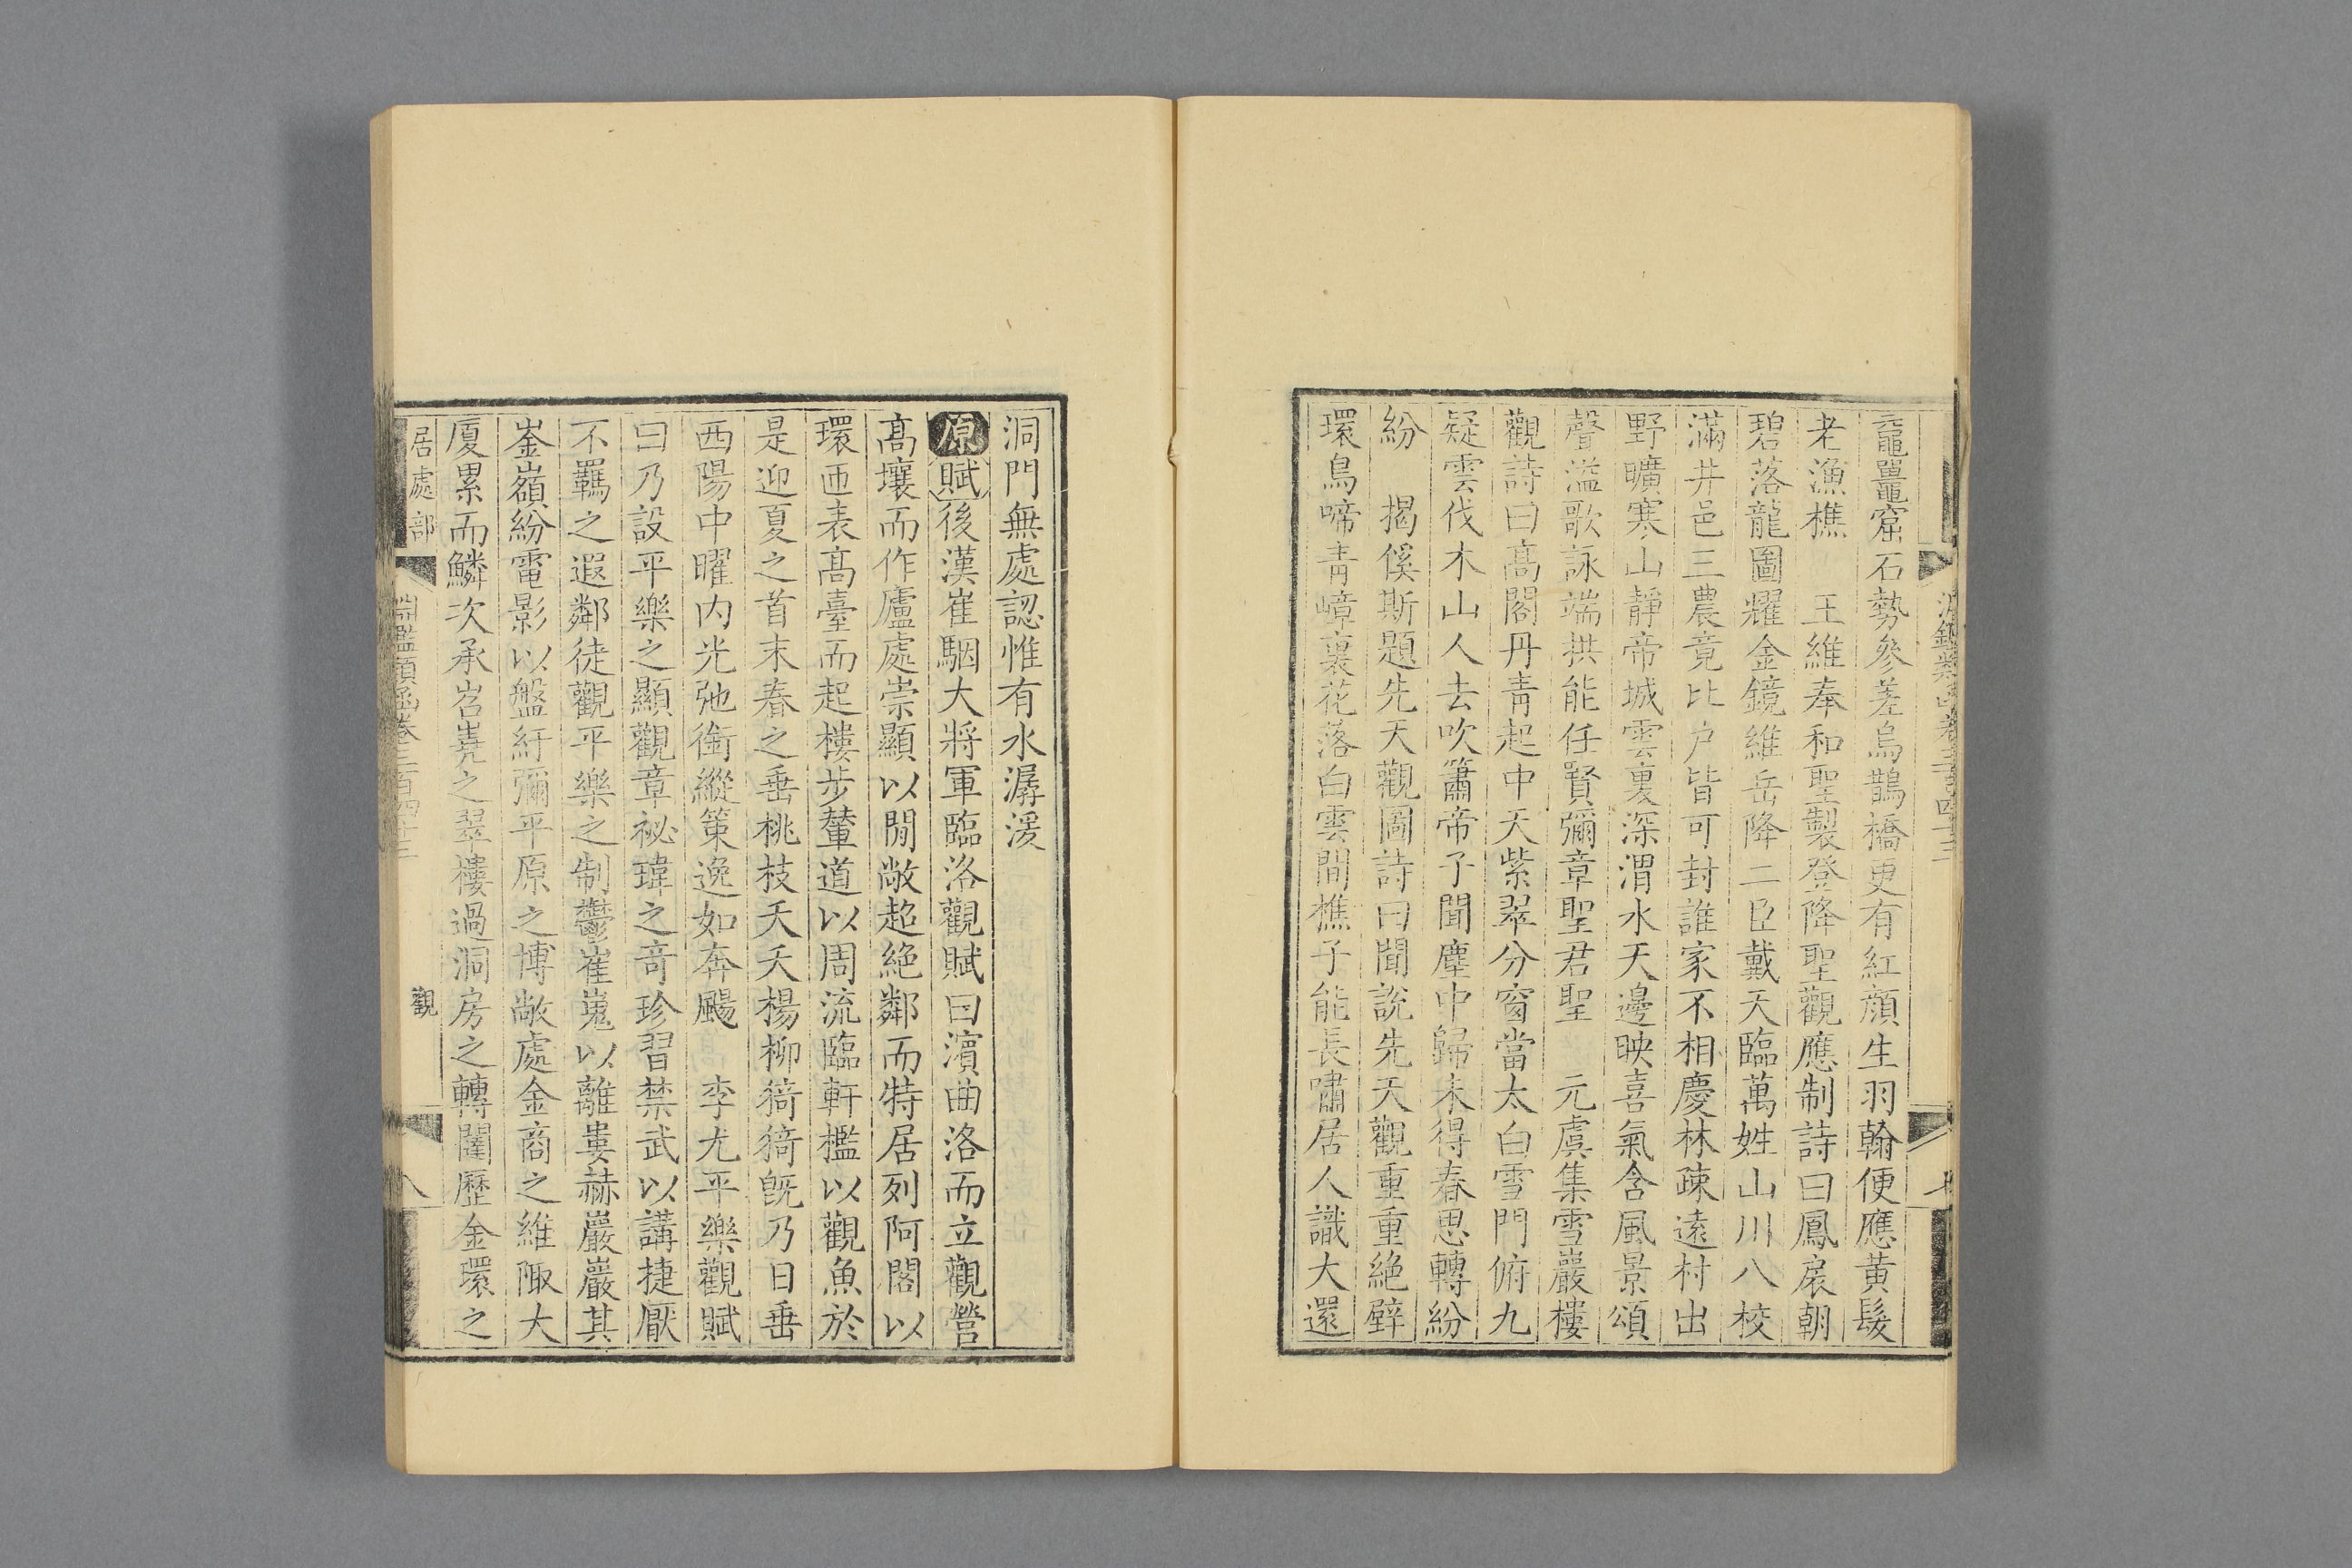 黿鼉窟石勢參差烏鵲橋更有紅顔生羽翰便應黃髮
老漁樵　王維奉和聖製登降聖觀應制詩曰鳳扆朝
碧落龍圖耀金鏡維岳降二臣戴天臨萬姓山川八校
滿井邑三農竟比户皆可封誰家不相慶林疎遠村出
野曠寒山靜帝城雲裏深渭水天邊映喜氣含風景頌
聲溢歌詠端拱能任賢彌章聖君聖　元虞集雪巖樓
觀詩曰高閣丹青起中天紫翠分窗當太白雪門俯九
疑雲伐木山人去吹簫帝子聞塵中歸未得春思轉紛
紛　揭傒斯題先天觀圖詩曰聞說先天觀重重絶壁
環鳥啼青嶂裏花落白雲間樵子能長嘯居人識大還
洞門無處認惟有水潺湲
原賦後漢崔駰大將軍臨洛觀賦曰濱曲洛而立觀營
高壤而作廬處崇顯以閒敞超絶鄰而特居列阿閣以
環匝表高臺而起樓步輦道以周流臨軒檻以觀魚於
是迎夏之首末春之垂桃枝夭夭楊柳猗猗旣乃日垂
西陽中曜内光弛銜縱策逸如奔颺　李尤平樂觀賦
曰乃設平樂之顯觀章祕瑋之竒珍習禁武以講捷厭
不羈之遐鄰徒觀平樂之制鬱崔嵬以離婁赫巖巖其
崟嶺紛電影以盤紆彌平原之博敞處金商之維陬大
厦累而鱗次承岧嶤之翠樓過洞房之轉闥歷金環之
居處部
淵鑑類函卷三百四十三
觀
八